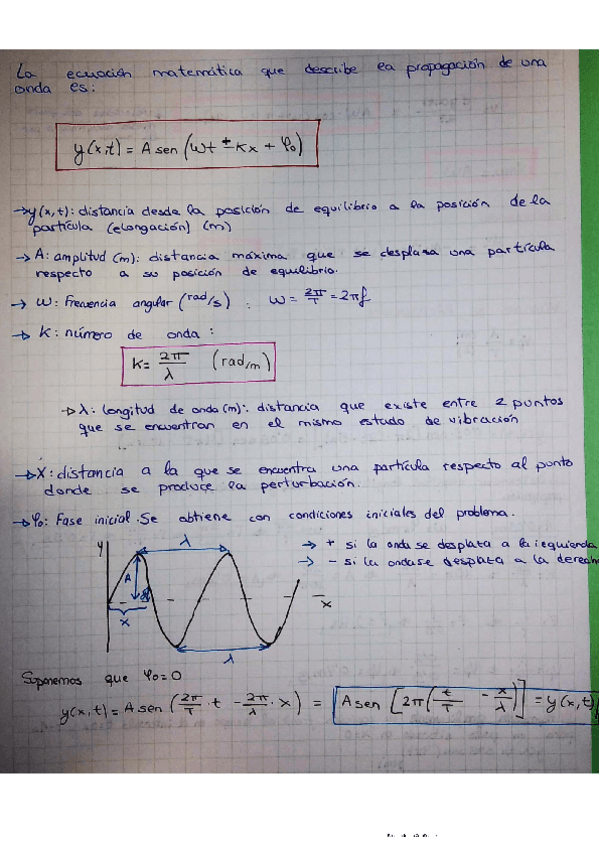 La ecuación matemática que describe la propagación de una
onda es:
y(x,t) = A sen (ωt ± Kx + φ₀)
→ y(x,t): distancia desde la posición de equilibrio a la posición de la
partícula (elongación) (m)
→ A: amplitud (m): distancia máxima que se desplaza una partícula
respecto a su posición de equilibrio.
→ ω: Frecuencia angular (rad/s) : ω = 2π/T = 2πf
→ K: número de onda:
K = 2π/λ (rad/m)
→ λ: longitud de onda (m): distancia que existe entre 2 puntos
que se encuentran en el mismo estado de vibración
→ X: distancia a la que se encuentra una partícula respecto al punto
donde se produce la perturbación.
→ φ₀: Fase inicial. Se obtiene con condiciones iniciales del problema.
y
λ
→ + si la onda se desplaza a la izquierda
→ - si la onda se desplaza a la derech
A
x
x
λ
Suponemos que φ₀=0
y(x,t) = A sen (2π/T · t - 2π/λ · x) = A sen [2π(t/T - x/λ)] = y(x,t)